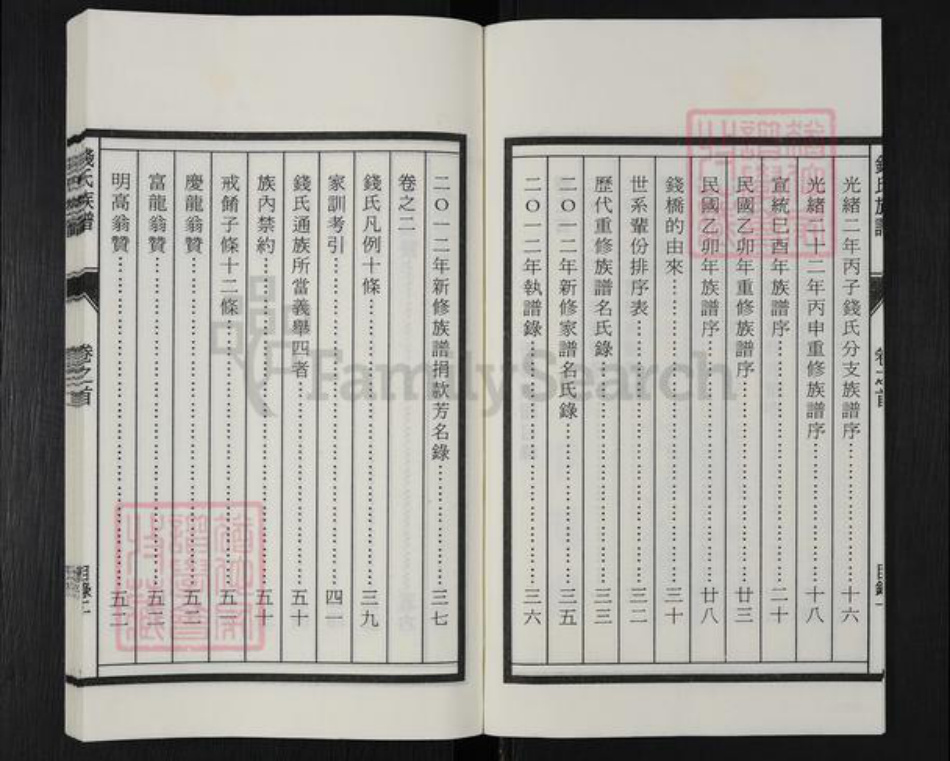 光緒二年丙子錢氏分支族譜序……十六
光緒二十二年丙申重修族譜序……十八
宣統巳酉年族譜序……二十
民國乙卯年重修族譜序……廿三
民國乙卯年族譜序……廿八
錢橋的由來……三十
世系輩份排序表……三二
歷代重修族譜名氏錄……三三
二〇一二年新修家譜名氏錄……三五
二〇一二年執譜錄……三六
目錄一
二〇一二年新修族譜捐款芳名錄……三七
卷之二
錢氏凡例十條……三九
家訓考引……四一
錢氏通族所當義舉四者……五十
族內禁約……五十
戒餚子條十二條……五一
慶龍翁贊……五二
富龍翁贊……五二
明高翁贊……五二
錢氏族譜
卷之首
目錄二
FamilySearch